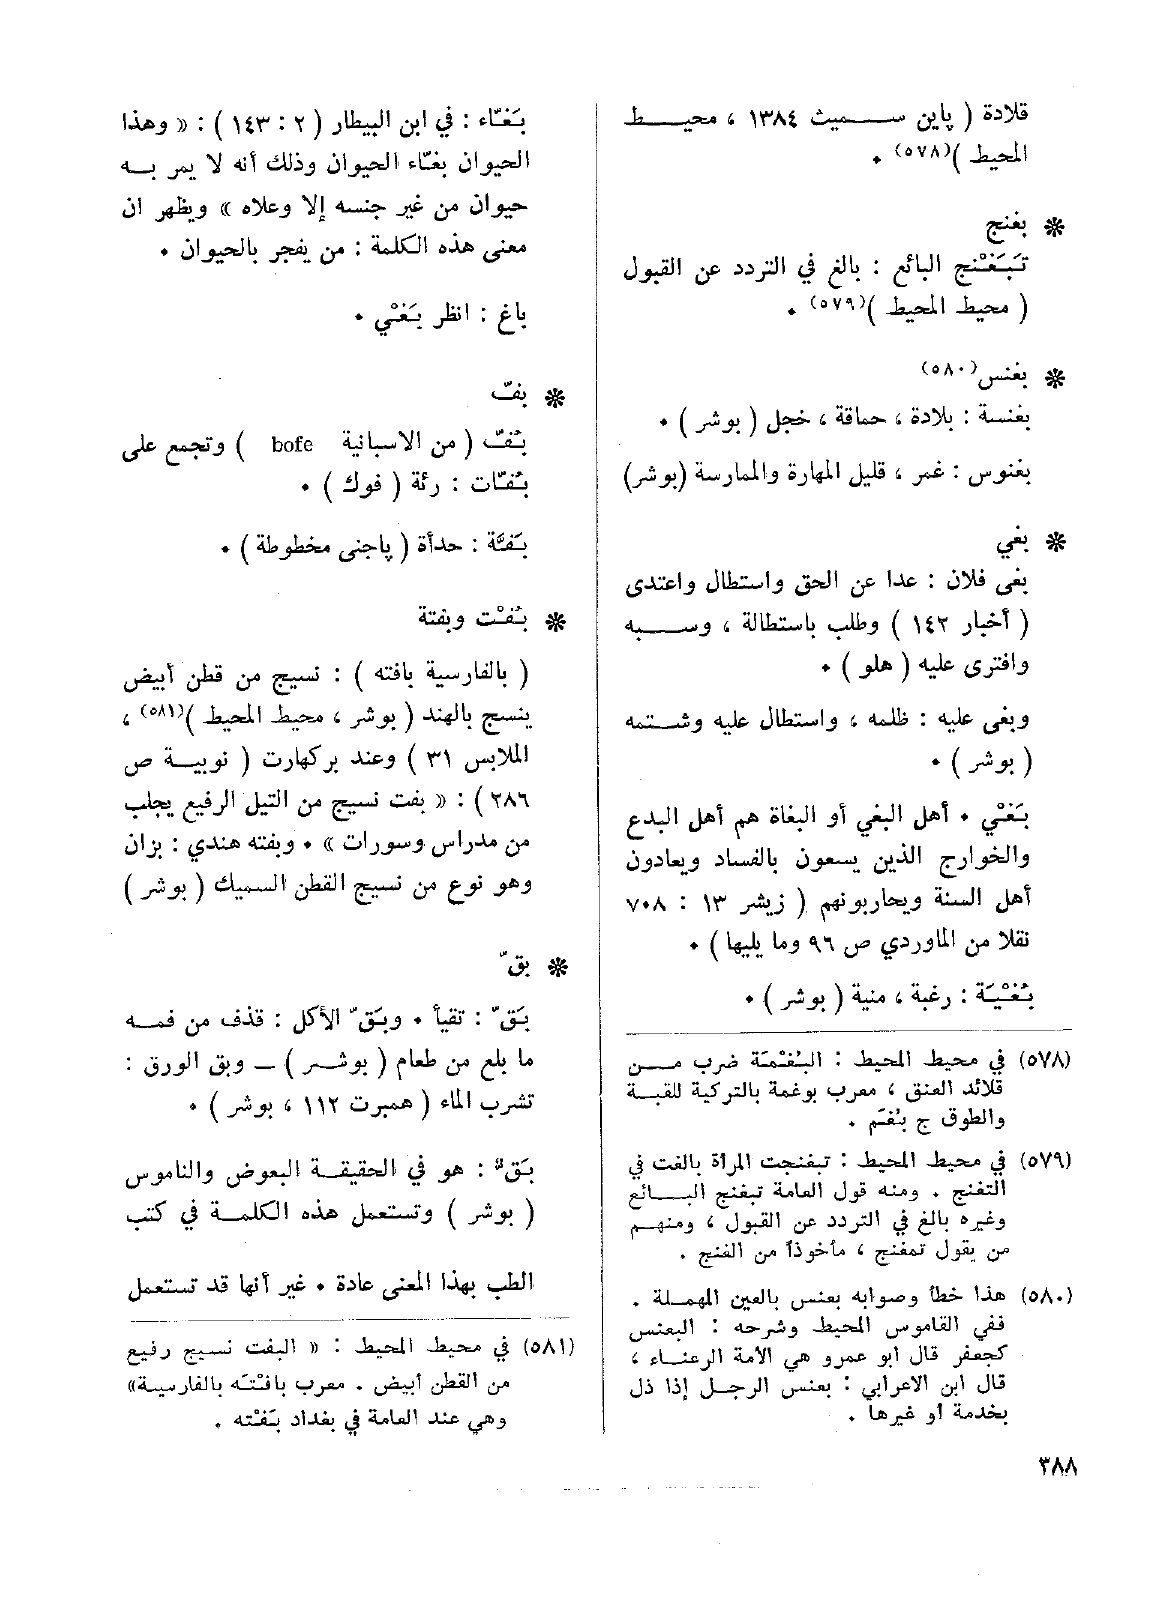 قلادة ( پاين سميث ١٣٨٤ ، محيط
المحيط )(٥٧٨) .
* بغنج
تَبَغْنج البائع : بالغ في التردد عن القبول
( محيط المحيط )(٥٧٩) .
* بغنس(٥٨٠)
بغنسة : بلادة ، حماقة ، خجل ( بوشر ) .
بغنوس : غمر ، قليل المهارة والممارسة (بوشر)
* بغي
بغى فلان : عدا عن الحق واستطال واعتدى
( أخبار ١٤٣ ) وطلب باستطالة ، وسبه
وافترى عليه ( هلو ) .
وبغى عليه : ظلمه ، واستطال عليه وشتمه
( بوشر ) .
بَغْي . أهل البغي أو البغاة هم أهل البدع
والخوارج الذين يسعون بالفساد ويعادون
أهل السنة ويحاربونهم ( زيشر ١٣ : ٧٠٨
نقلا من الماوردي ص ٩٦ وما يليها ) .
بُغْيَة : رغبة ، منية ( بوشر ) .
(٥٧٨) في محيط المحيط : البُغْمَة ضرب من
قلائد العنق ، معرب بوغمة بالتركية للقبة
والطوق ج بُغَم .
(٥٧٩) في محيط المحيط : تبغنجت المرأة بالغت في
التغنج . ومنه قول العامة تبغنج البائع
وغيره بالغ في التردد عن القبول ، ومنهم
من يقول تمغنج ، مأخوذاً من الغنج .
(٥٨٠) هذا خطأ وصوابه بعنس بالعين المهملة .
ففي القاموس المحيط وشرحه : البعنس
كجعفر قال أبو عمرو هي الأمة الرعناء ،
قال ابن الاعرابي : بعنس الرجل إذا ذل
بخدمة أو غيرها .
بَغّاء : في ابن البيطار ( ٢ : ١٤٣ ) : « وهذا
الحيوان بغّاء الحيوان وذلك أنه لا يمر به
حيوان من غير جنسه إلا وعلاه » ويظهر ان
معنى هذه الكلمة : من يفجر بالحيوان .
باغ : انظر بَغْي .
* بفّ
بُفّ ( من الاسبانية bofe ) وتجمع على
بُفّات : رئة ( فوك ) .
بَفَّة : حدأة ( پاجنى مخطوطة ) .
* بُفْت وبفتة
( بالفارسية بافته ) : نسيج من قطن أبيض
ينسج بالهند ( بوشر ، محيط المحيط )(٥٨١) ،
الملابس ٣١ ) وعند بركهارت ( نوبية ص
٢٨٦ ) : « بفت نسيج من التيل الرفيع يجلب
من مدراس وسورات » . وبفته هندي : بزان
وهو نوع من نسيج القطن السميك ( بوشر )
* بقّ
بَقّ : تقيأ . وبَقّ الأكل : قذف من فمه
ما بلع من طعام ( بوشر ) ــ وبق الورق :
تشرب الماء ( همبرت ١١٢ ، بوشر ) .
بَقّ : هو في الحقيقة البعوض والناموس
( بوشر ) وتستعمل هذه الكلمة في كتب
الطب بهذا المعنى عادة . غير أنها قد تستعمل
(٥٨١) في محيط المحيط : « البفت نسيج رفيع
من القطن أبيض . معرب بافْتَه بالفارسية»
وهي عند العامة في بغداد بَفْته .
٣٨٨